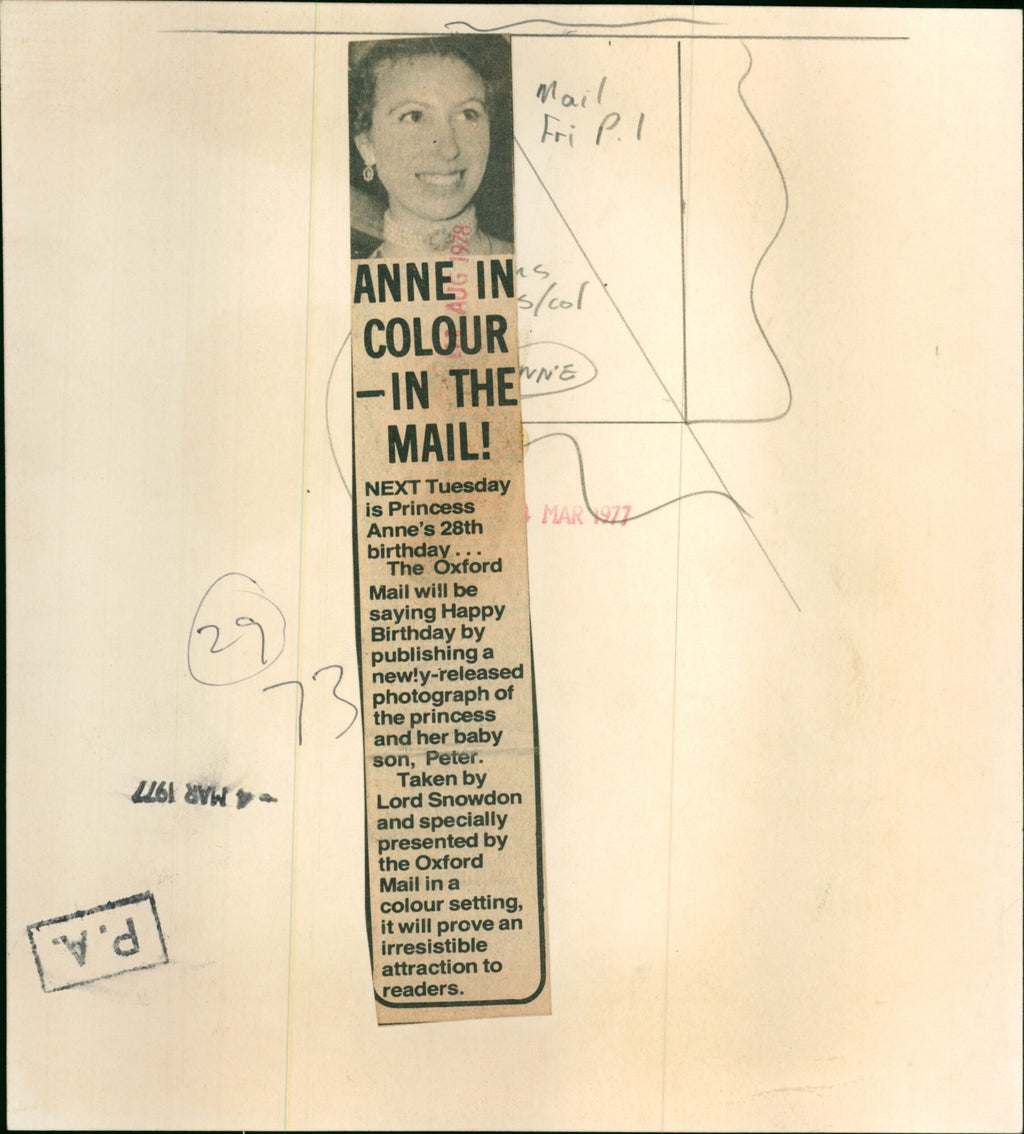 Mail
Fri P.1
ANNE IN
COLOUR
—IN THE
MAIL!
AUG 1978
s/col
NEXT Tuesday
is Princess
Anne's 28th
birthday . . .
The Oxford
Mail will be
saying Happy
Birthday by
publishing a
newly-released
photograph of
the princess
and her baby
son, Peter.
Taken by
Lord Snowdon
and specially
presented by
the Oxford
Mail in a
colour setting,
it will prove an
irresistible
attraction to
readers.
4 MAR 1977
29
73
-4 MAR 1977
P.A.